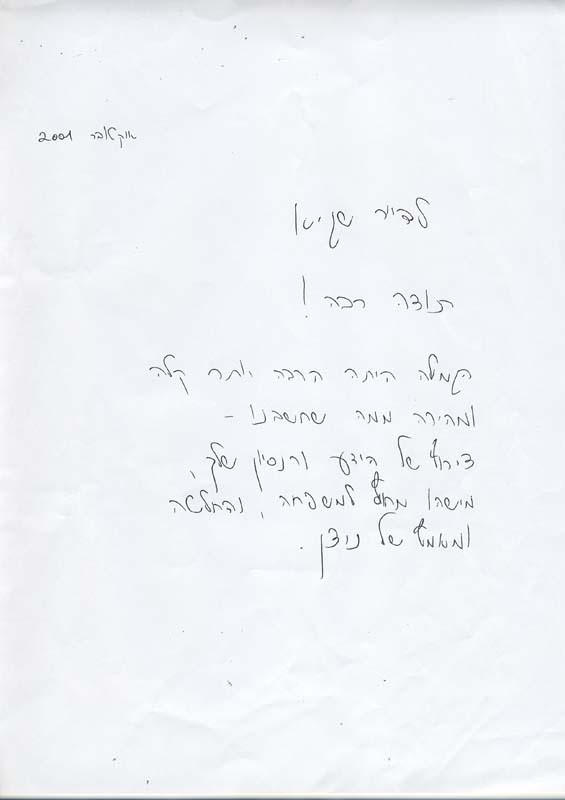 אוקטובר 2001
לדיר
תודה רבה!
הגמילה היתה הרבה יותר קלה
ומהירה ממה שחשבנו -
צירוף של הידע והנסיון שלך,
מישהו מחוץ למשפחה, והחלטה
ומאמץ של ניצן.